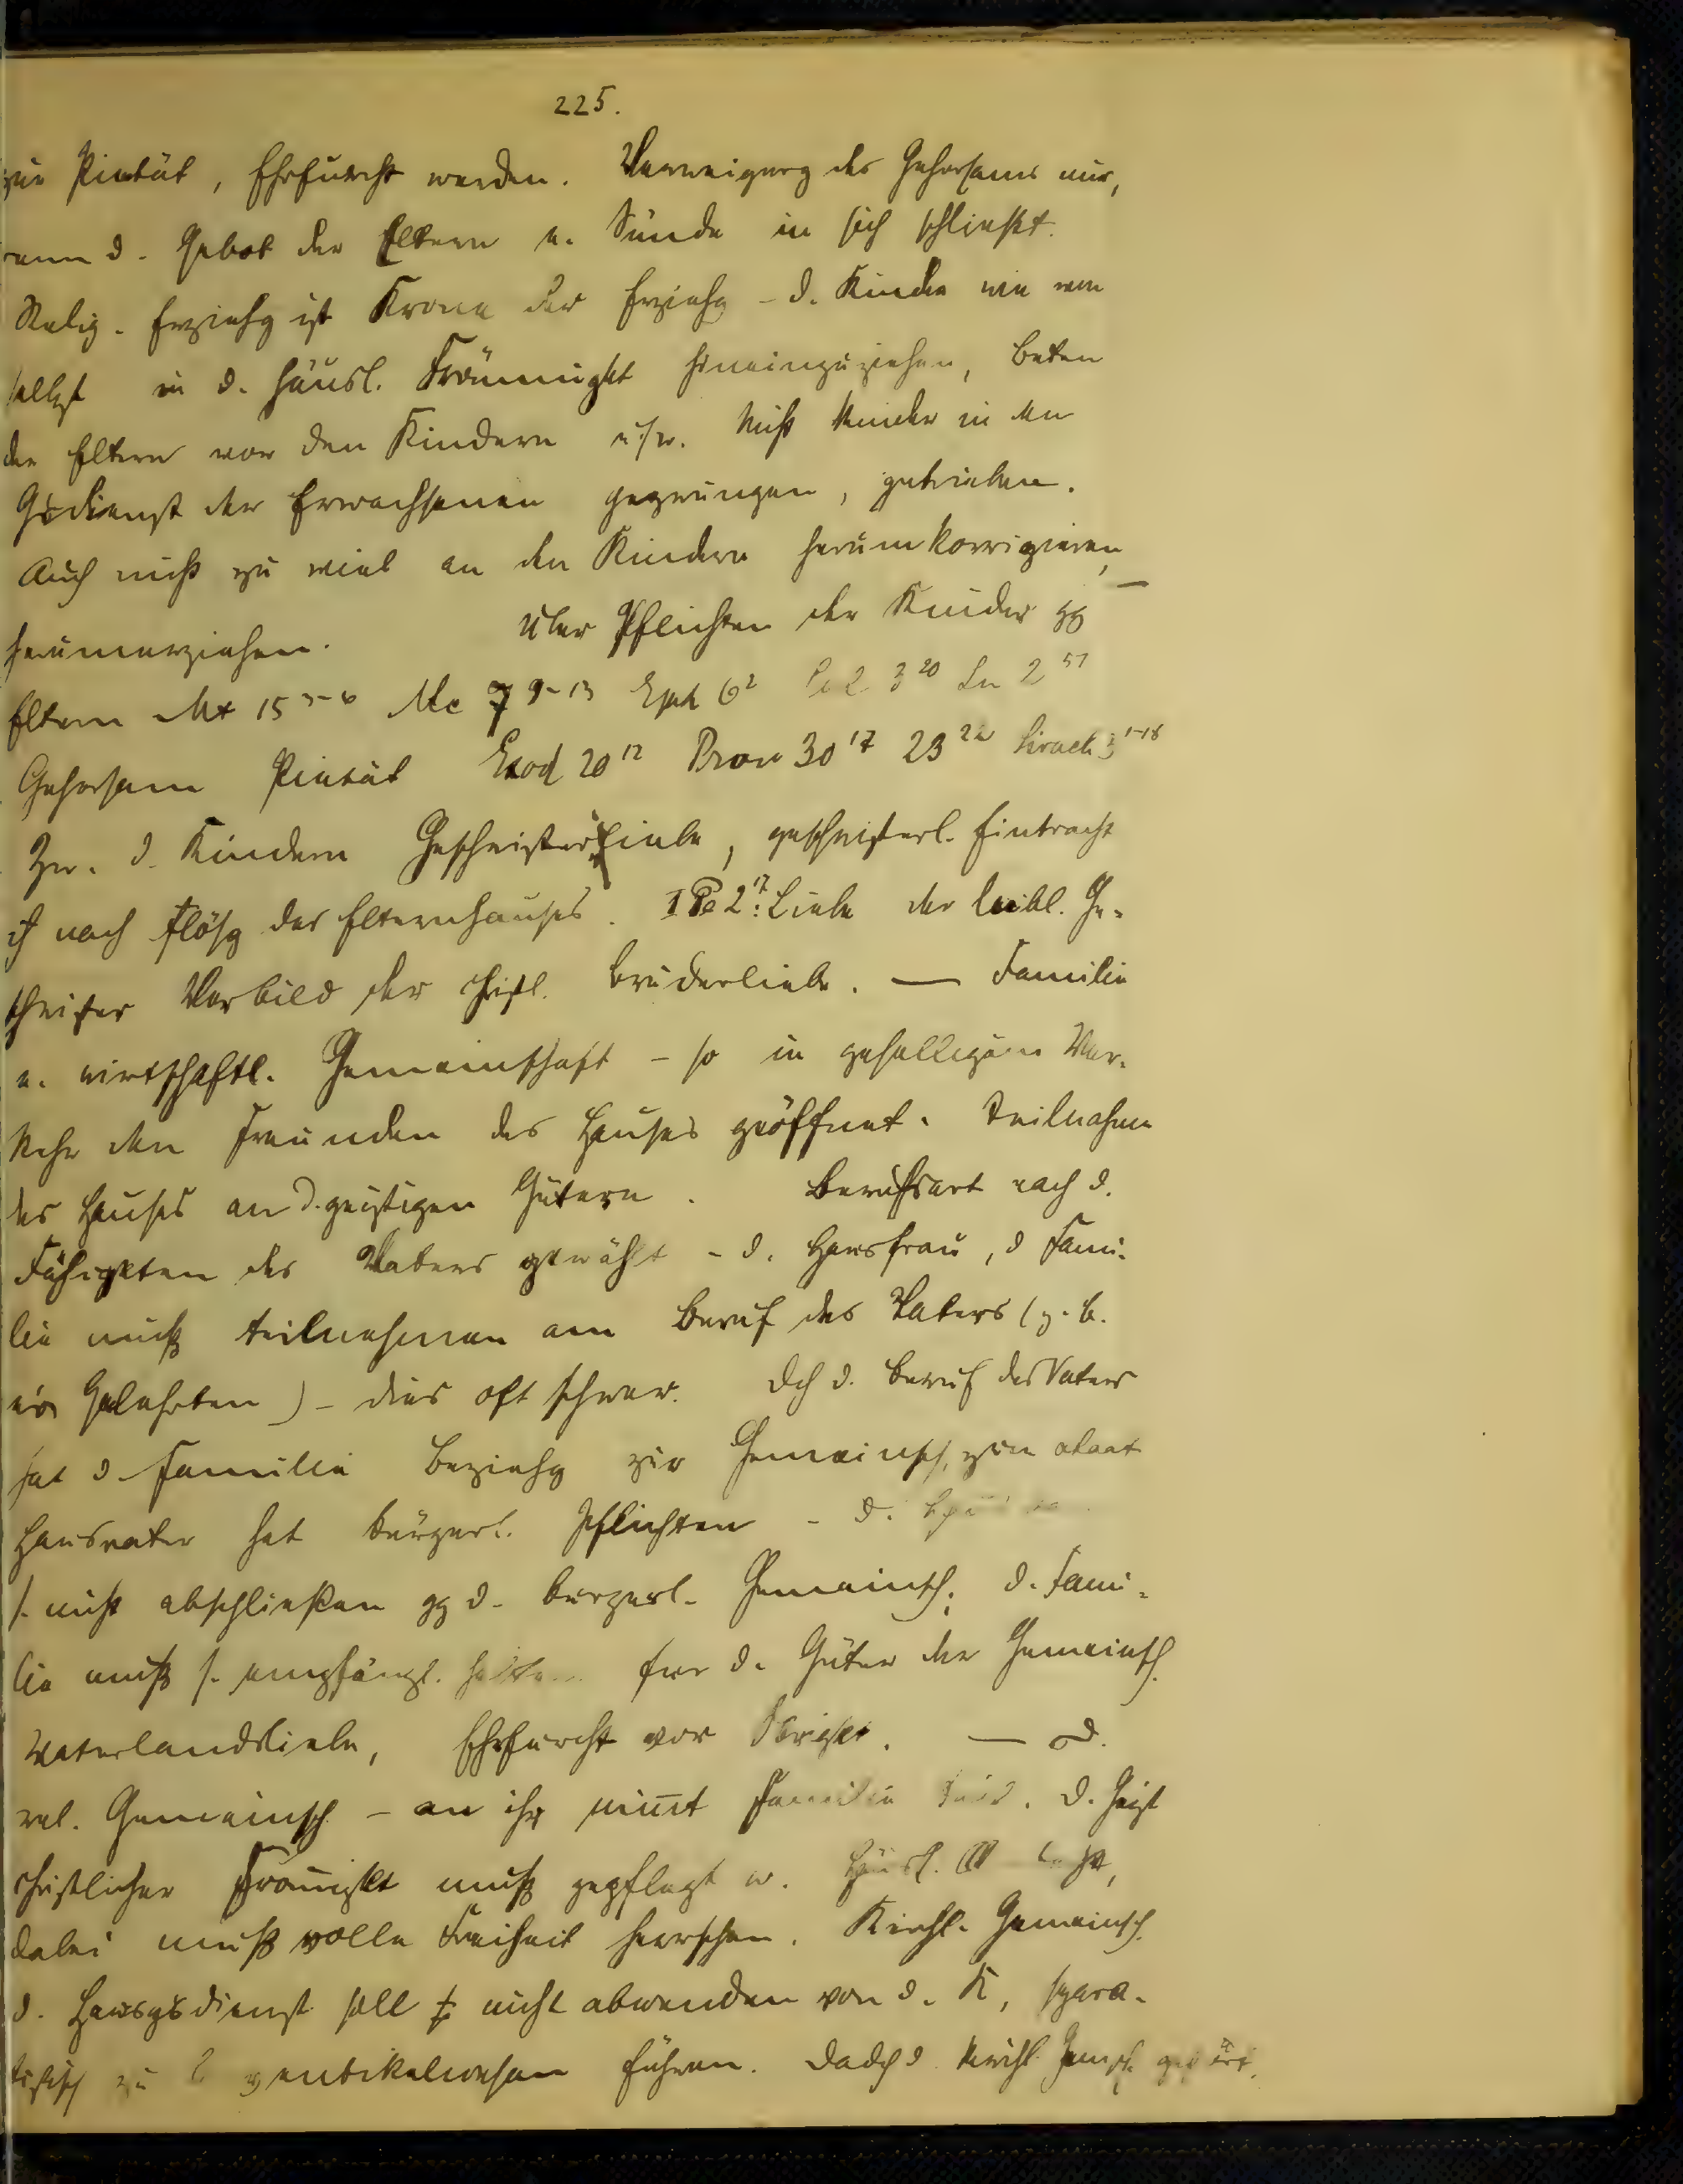 225.
zur Pietät, Ehrfurcht werden. Verweigerg des Gehorsams nur,
wenn d. Gebot der Eltern e. Sünde in sich schließt.
Relig. Erziehg ist Krone der Erziehg – d. Kinder wie von
selbst in d. häusl. Frömmigkt hineinzuziehen, Beten
der Eltern vor den Kindern usw. Nicht Kinder in den
Gsdienst der Erwachsenen gezwungen, getrieben.
Auch nicht zu viel an den Kindern herumkorrigieren,
herumerziehen. – Über Pflichten der Kinder gg
Eltern Mt 15 3-6 Mc 7 9-13 Eph 6 2 Col 3 20 Lu 2 51
Gehorsam Pietät Exod 20 12 Prov 30 17 23 22 Sirach 3 1-18
Zw. d. Kindern Geschwisterliebe, geschwisterl. Eintracht
nach Auflösg des Elternhauses. I Pe 2 17: Liebe der leibl. Ge-
schwister Vorbild der christl. Bruderliebe. — Familie
e. wirtschaftl. Gemeinschaft – so in geselligem Ver-
kehr den Freunden des Hauses geöffnet. Teilnahme
des Hauses an d. geistigen Gütern. Berufsart nach d.
Fähigkten des Vaters gewählt – d. Hausfrau, d Fami-
lie muß teilnehmen am Beruf des Vaters (z. B.
eis Gelehrten) – dies oft schwer. Dch d. Beruf des Vaters
hat d. Familie Beziehg zur Gemeinsch, zum Staat
Hausvater hat bürgerl. Pflichten – d.
s. nicht abschließen gg d. bürgerl. Gemeinsch; d. Fami-
lie muß s. empfängl. halten für d. Güter der Gemeinsch.
Vaterlandsliebe, Ehrfurcht vor Obrigkt. — D.
rel. Gemeinsch – an ihr nimmt Familie teil. D. Geist
christlicher Frömmigkt muß gepflegt w. Häusl.
dabei muß volle Freiheit herrschen. Kirchl. Gemeinsch.
d. Hausgsdienst soll nicht abwenden von d. K, separa-
tistisch zu Conventikelwesen führen. Dadch d kirchl. Gemsch.